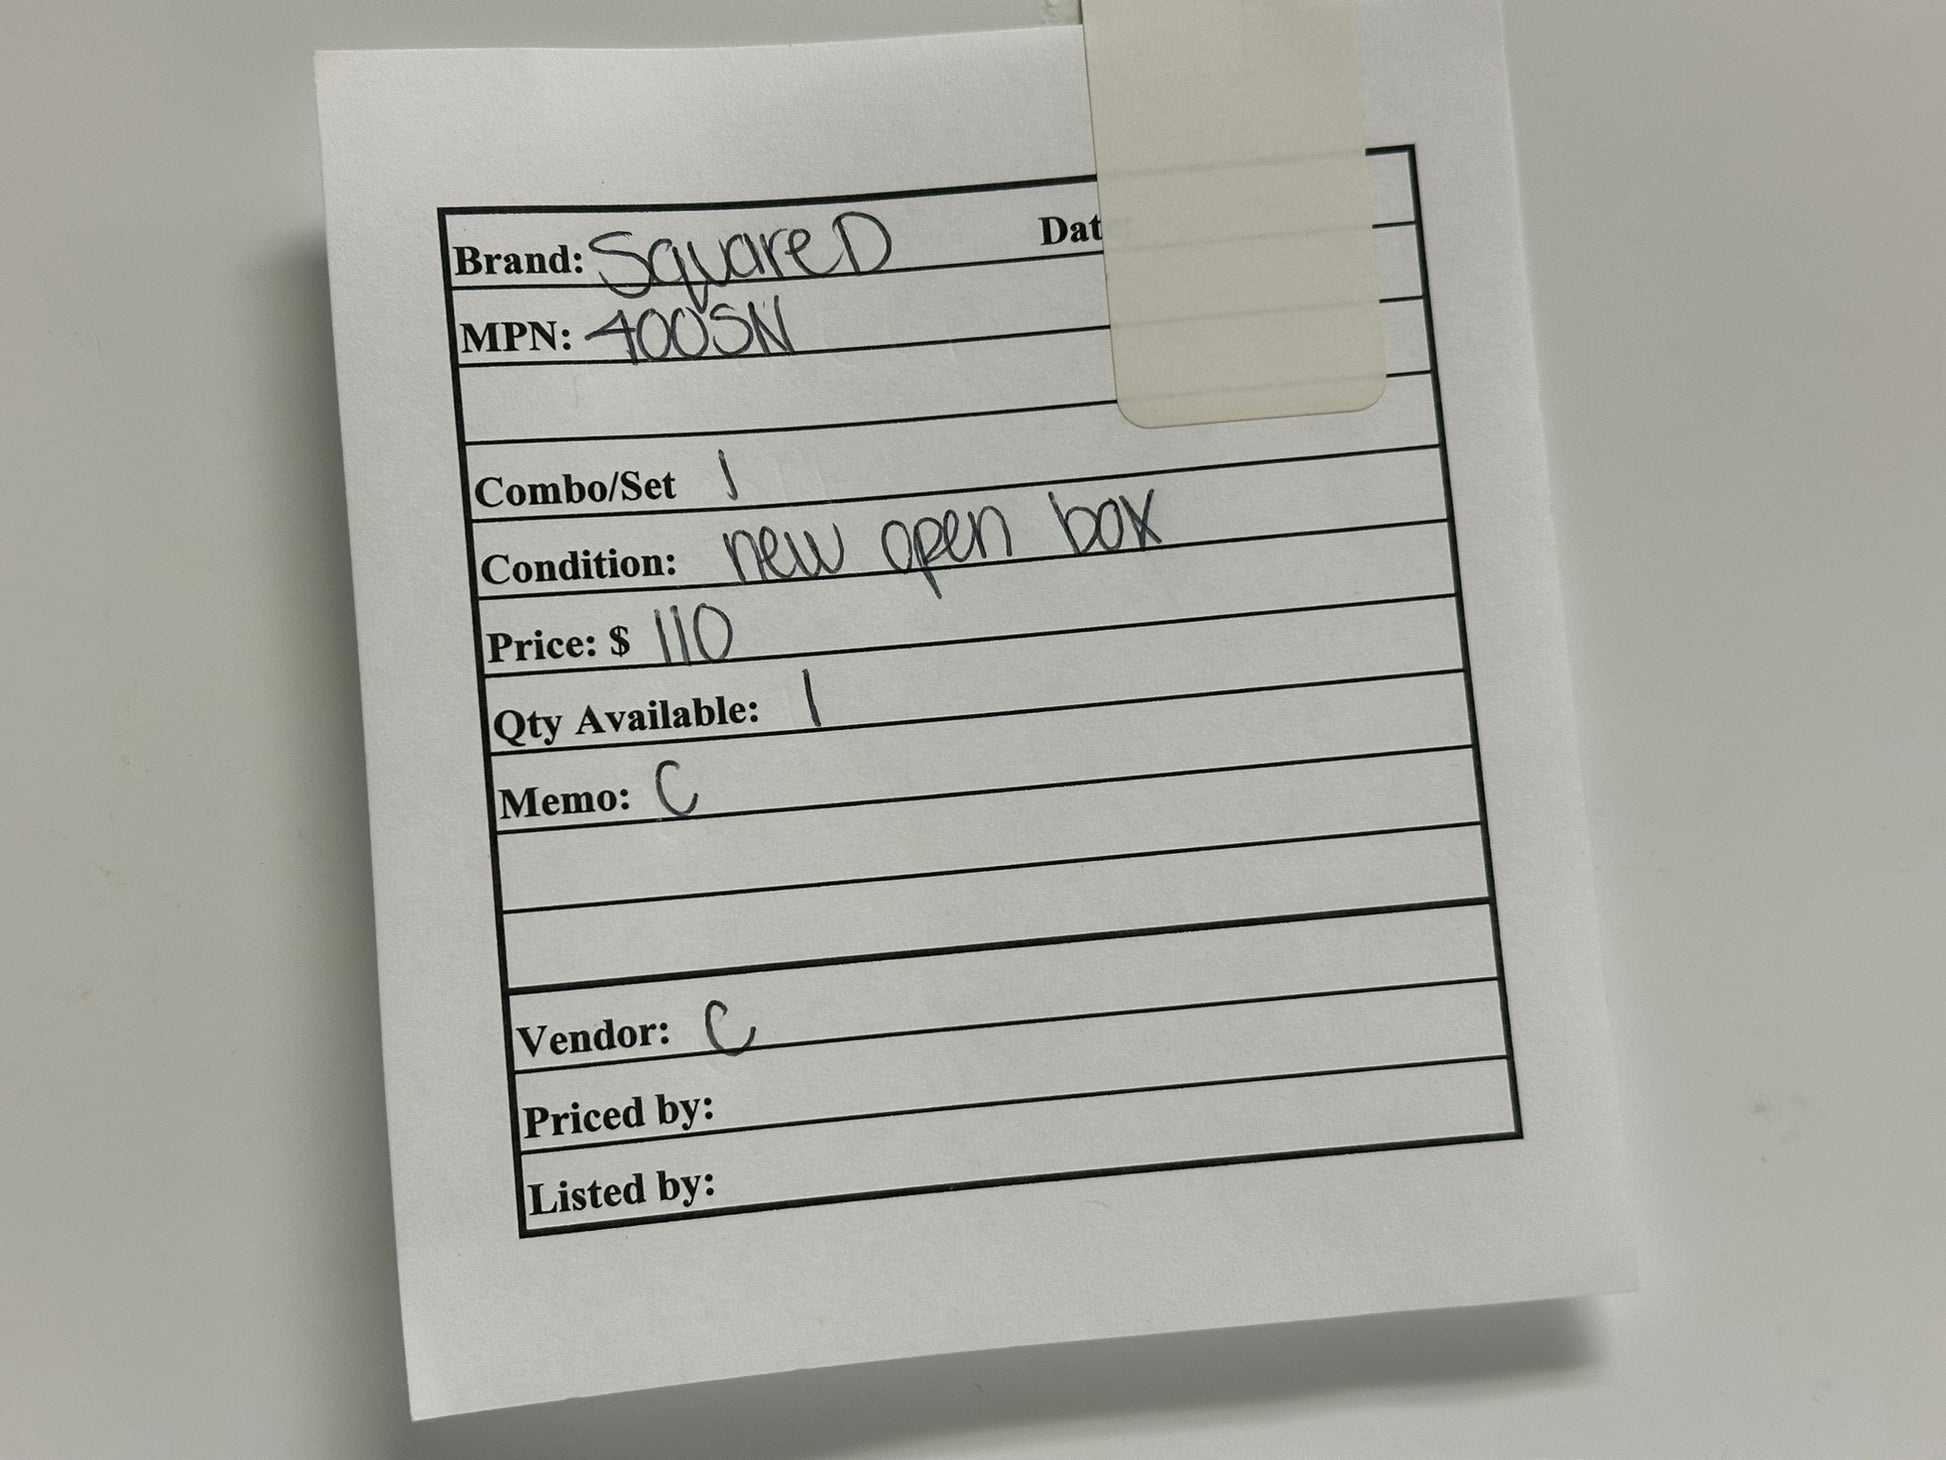 Brand: Square D Dat
MPN: 400SN
Combo/Set 1
Condition: new open box
Price: $ 110
Qty Available: 1
Memo: C
Vendor: C
Priced by:
Listed by: